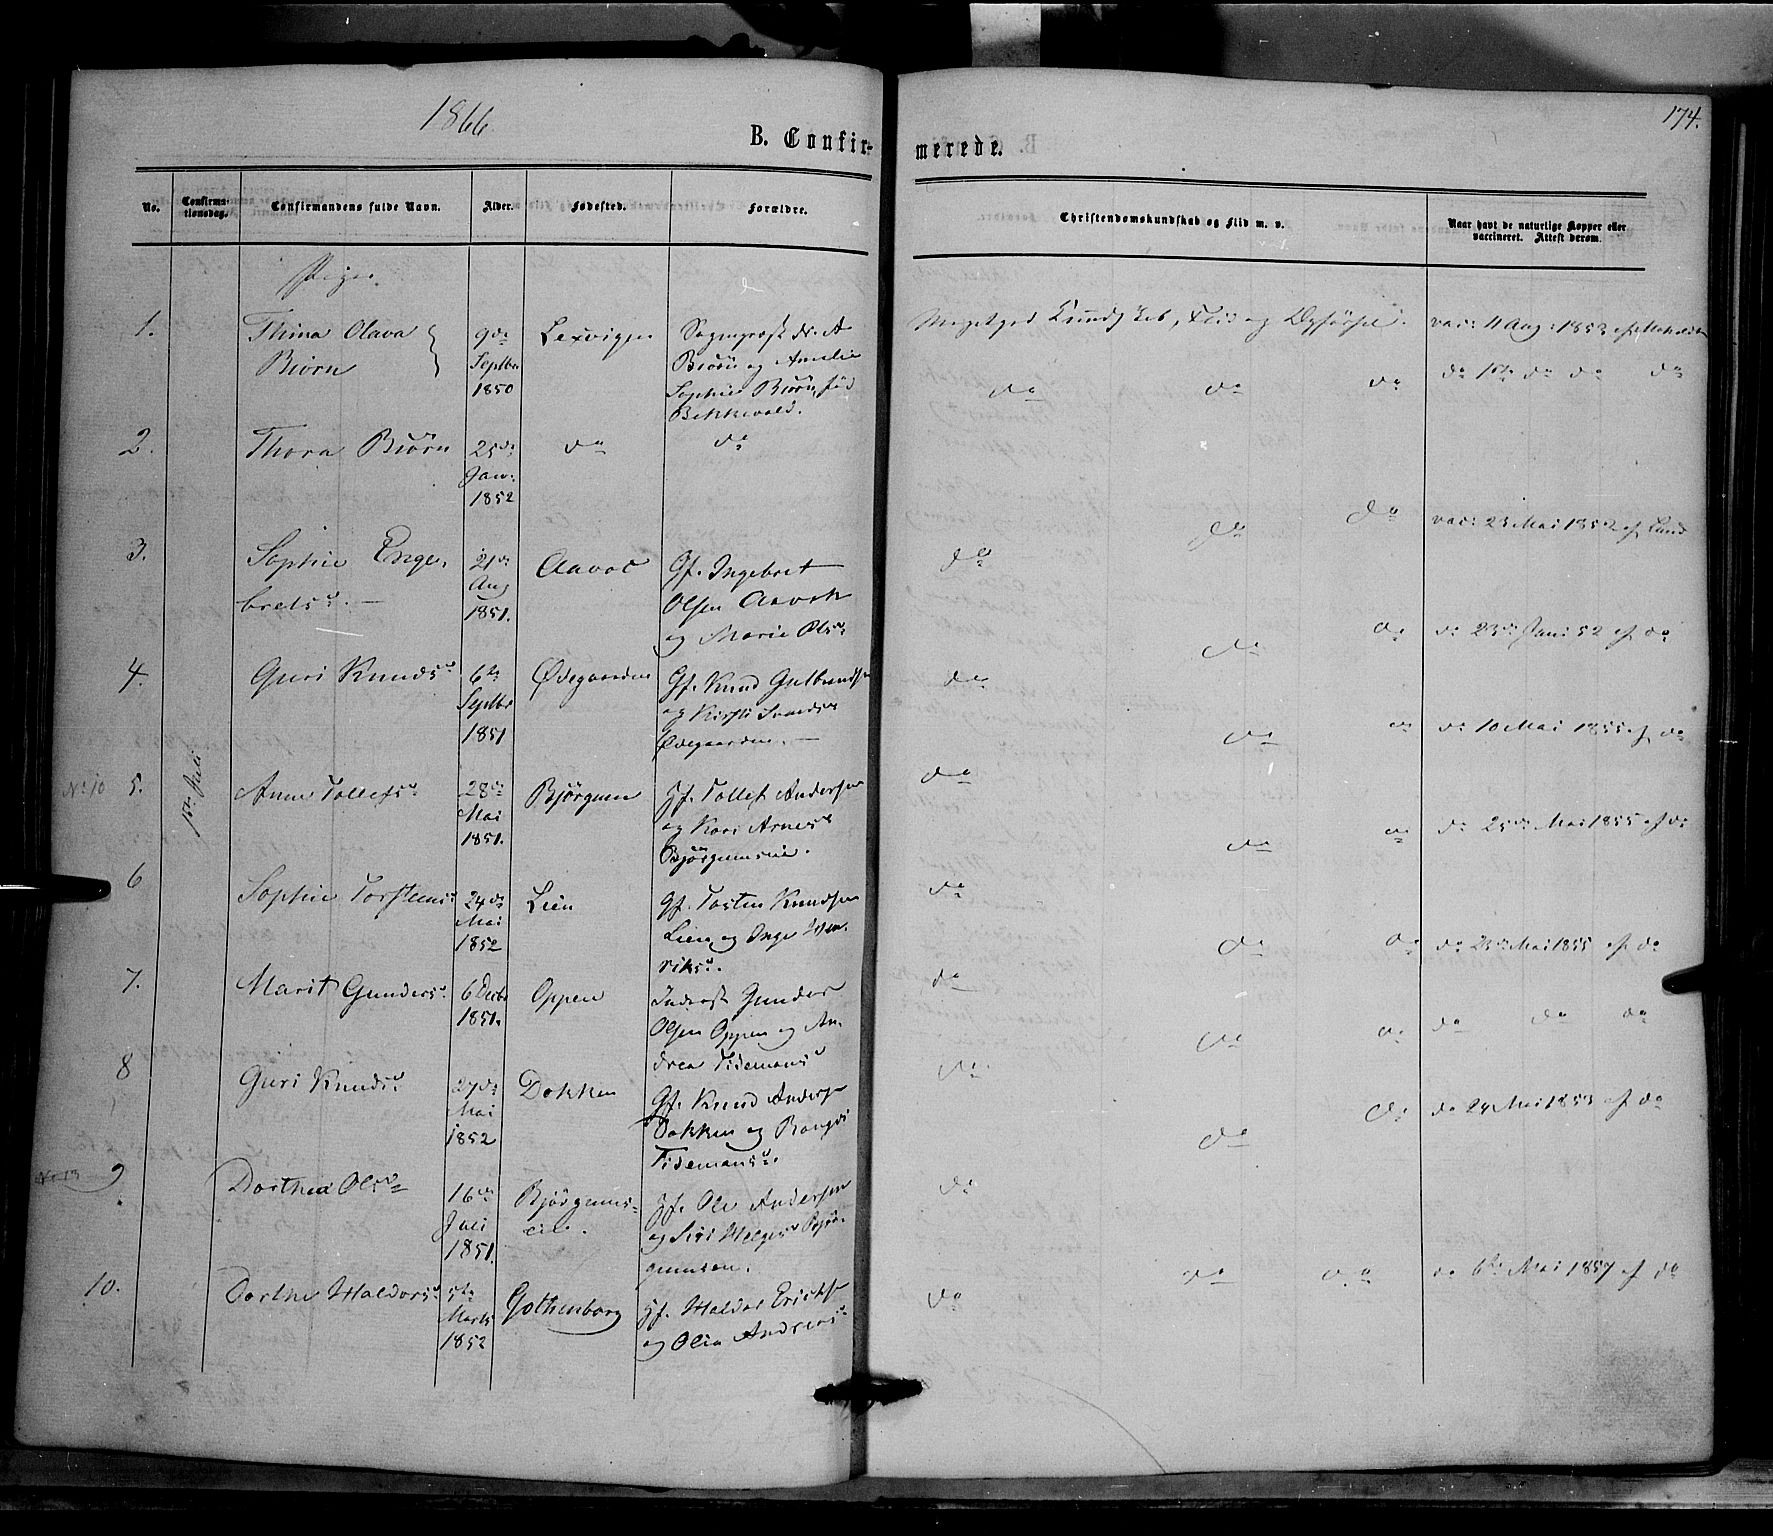 1866
174.
B. Confir-
merede.
No.
Confirma-
tionsdag.
Confirmandens fulde Navn.
Alder.
Fødested.
Forældre.
Christendomskundskab og Flid m. v.
Naar havt de naturlige Kopper eller
vaccineret. Attest derom.
Piger.
1.
Thina Olava
Biørn
9de
Septbr
1850
Lexvigen
Sognepræst
Biørn og Amelie
Sophie Biørn, fød
Bekkevold.
Megetgod Kundskab, Flid og Opførsel.
vac: 11 Aug: 1853 af
2.
Thora Biørn
25de
Janr.
1852
do
do
do do do
do do do do
3.
Sophie Enge-
bretsd.
21de
Aug
1851.
Aavok
Gf. Ingebret
Olsen Aavok
og Marie Olsd.
do do do
vac: 23 Mai 1852 af Lund
4.
Guri Knudsd.
6te
Septbr
1851
Ødegaarden
Gf. Knud Gulbrandsen
og Kirsti
Ødegaarden.
do do do
do 23de Juni 52 af do
No 10 5.
1ste Juli
Anne Tollefsd.
28de
Mai
1851.
Bjørgum
Hf. Tollef Andersen
og Kari Arnesd
Bjørgumseie.
do do do
do 10 Mai 1855 af do
6
Sophie Torstensd.
24de
Mai
1852
Lien
Gf. Torsten Knudsen
Lien og Inge Hen-
riksd.
do do do
do 25de Mai 1855 af do
7.
Marit Gundersd.
6 Decbr
1851.
Oppen
Inderst Gunder
Olsen Oppen og An-
drea Tidemansd
do do do
do 23de Mai 1855 af do
8
Guri Knudsd.
27de
Mai
1852
Dokken
Gf. Knud Anders
Dokken og Rangdi
Tidemansd.
do do do
do do do
9
Dorthea Olsd
16de
Juli
1851.
Bjørgums-
eie.
Hf. Ole Andersen
og Siri Helgesd Bjør-
gumseie.
do do do
do 24 Mai 1853 af do
10.
Dorthe Haldorsd.
5te
Marts
1852
Gothenborg
Hf. Haldor Ericks
og Olia Andreasd.
do do do
do 6te Mai 1857 af do